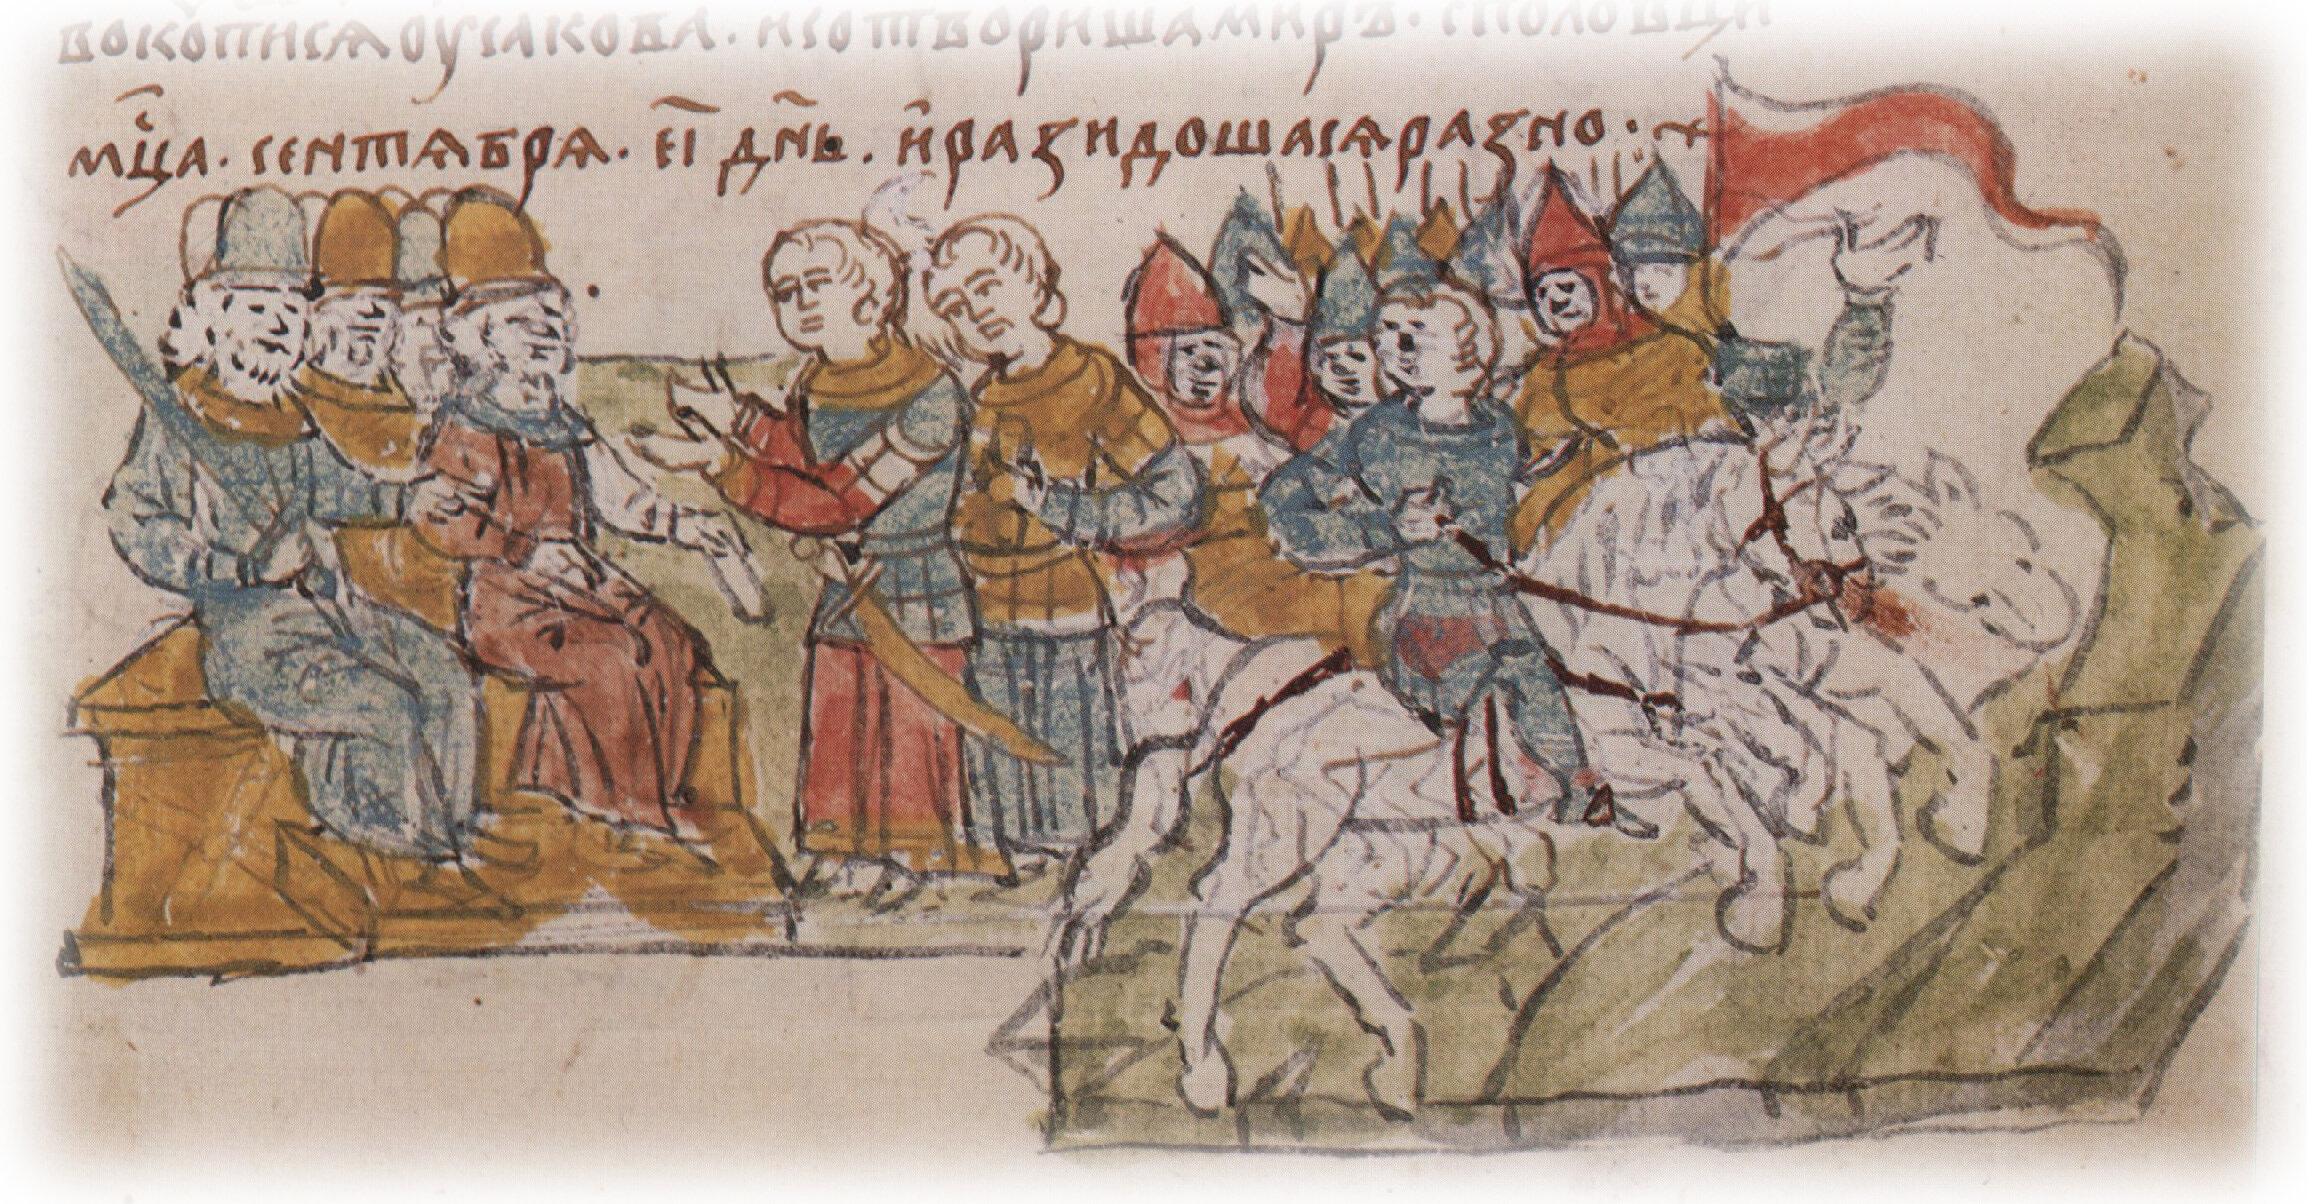 вокописѧоусакова. исотворишамиръ. споловци
мц҃а. сентѧбрѧ. еі҃ дн҃ь. иразидошасѧразно.